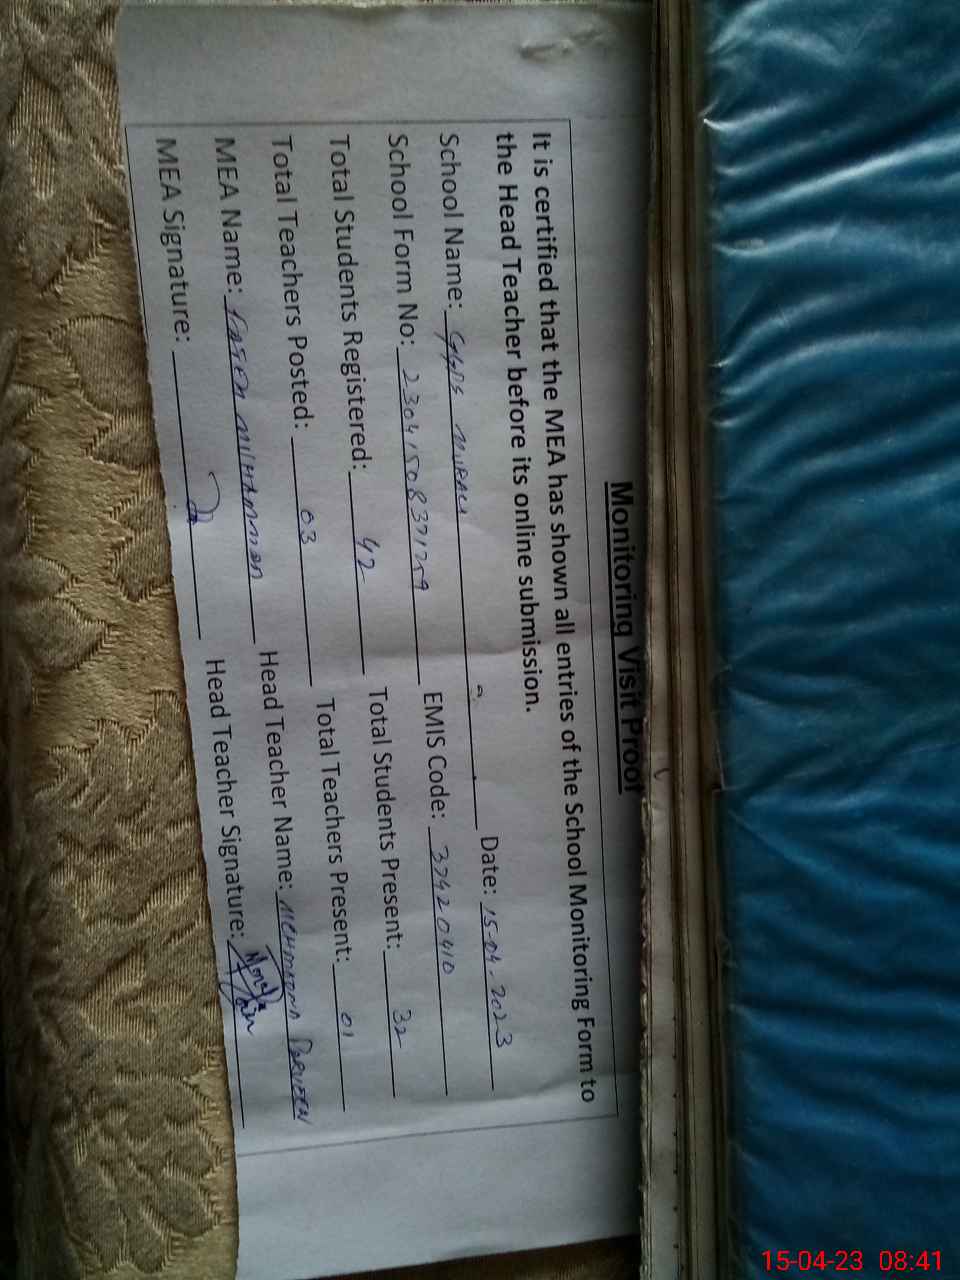 Monitoring Visit Proof
It is certified that the MEA has shown all entries of the School Monitoring Form to
the Head Teacher before its online submission.
School Name: GGPS Date: 15-04-2023
School Form No: EMIS Code: 37420410
Total Students Registered: 42 Total Students Present: 32
Total Teachers Posted: 03 Total Teachers Present: 01
MEA Name: MUHAMMAD Head Teacher Name: PARVEEN
MEA Signature: Head Teacher Signature:
15-04-23 08:41